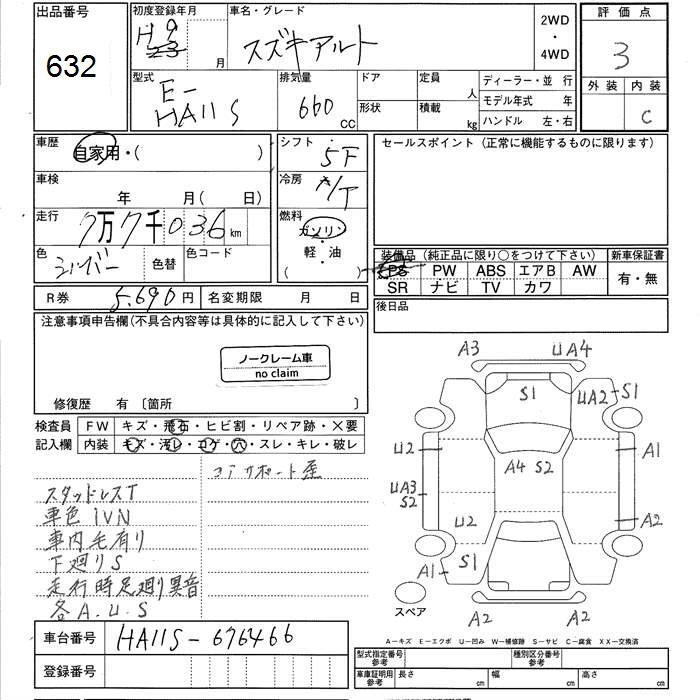 出品番号
632
初度登録年月
H 9
23
月
車名・グレード
スズキアルト
2WD
・
4WD
評価点
3
型式
E-
HA11S
排気量
660
CC
ドア
形状
定員
人
積載
kg
ディーラー・並 行
モデル年式 年
ハンドル 左・右
外装
内装
C
車歴
自家用・( )
車検
年 月( 日)
走行
7万7千036km
色
シルバー
色替
色コード
シフト
5F
冷房
A/T
燃料
ガソリン
・
軽・油
( )
セールスポイント (正常に機能するものに限ります)
装備品 (純正品に限り○をつけて下さい)
新車保証書
PS PW ABS エアB AW
SR ナビ TV カワ
有・無
後日品
R券
5,690円
名変期限 月 日
注意事項申告欄(不具合内容等は具体的に記入して下さい)
ノークレーム車
no claim
修復歴 有 〔箇所 〕
検査員
記入欄
FW キズ・飛石・ヒビ割・リペア跡・×要
内装 キズ・汚レ・コゲ・穴・スレ・キレ・破レ
コアサポート歪
スタッドレスT
車色IVN
車内毛有り
下廻りS
走行時足廻り異音
各A.U.S
A3 UA4
S1
UA2 S1
U2 A1
A4 S2
UA3
S2
U2 A2
S1
A1
A2 A2
スペア
A−キズ E−エクボ U−凹み W−補修跡 S−サビ C−腐食 XX−交換済
車台番号
HA11S-676466
登録番号
型式指定番号
参考
種別区分番号
参考
車庫証明用
参考
長さ cm
幅 cm
高さ cm